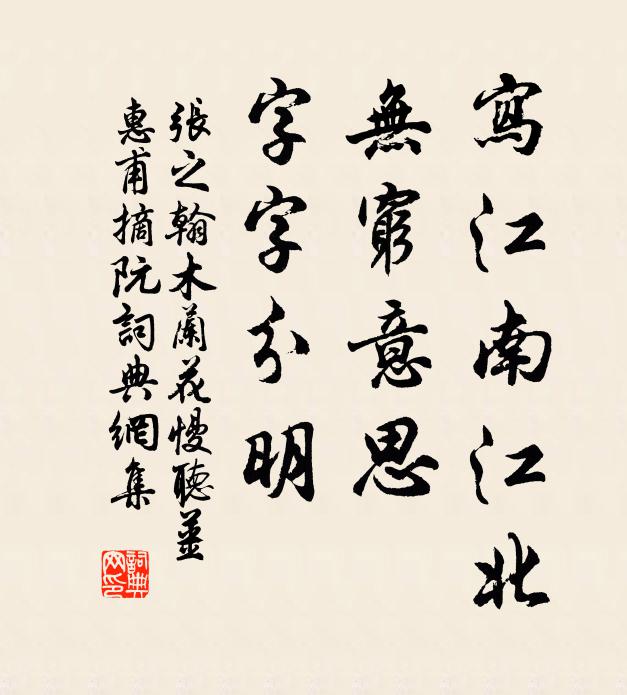 寫江南江北
無窮意思
字字分明
張之翰木蘭花慢聽姜
惠甫摘阮詞典網集
詞典網印